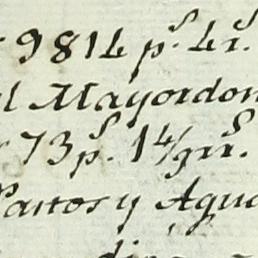 9814 p.s 4 r.s
l Mayordon
73 p.s 14/3 rr.s
Pastos y Agua